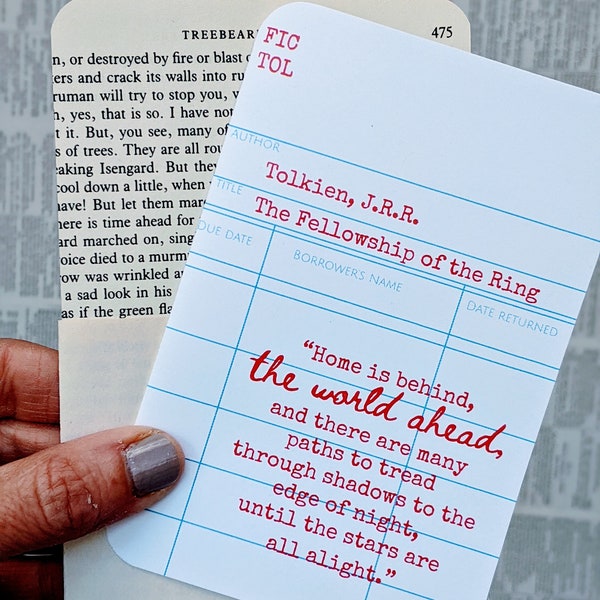 TREEBEAR
475
n, or destroyed by fire or blast o
ers and crack its walls into ru
ruman will try to stop you, w
n, yes, that is so. I have no
t it. But, you see, many of
s of trees. They are all rou
eaking Isengard. But they
cool down a little, when
have! But let them mar
here is time ahead for
ard marched on, sing
oice died to a murm
row was wrinkled a
a sad look in his
as if the green fla
FIC
TOL
AUTHOR
Tolkien, J.R.R.
TITLE
The Fellowship of the Ring
DUE DATE
BORROWER'S NAME
DATE RETURNED
“Home is behind,
the world ahead,
and there are many
paths to tread
through shadows to the
edge of night,
until the stars are
all alight.”